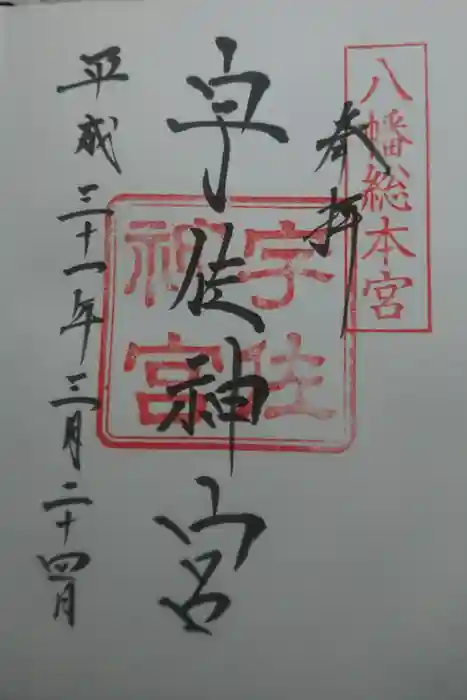 八幡総本宮
奉拝
宇佐神宮
宇佐
神宮
平成三十一年三月二十四日